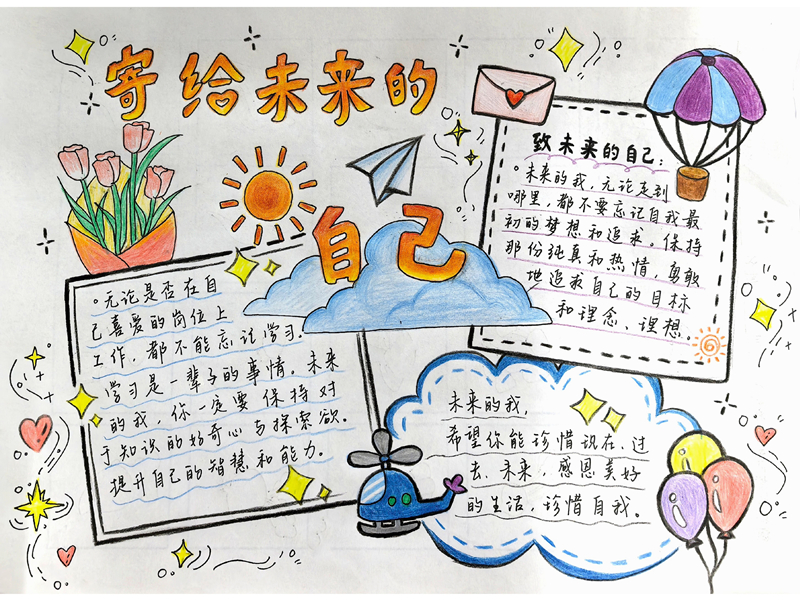 寄给未来的
自己
致未来的自己：
未来的我，无论走到
哪里，都不要忘记自我最
初的梦想和追求。保持
那份纯真和热情，勇敢
地追求自己的目标
和理念、理想。
6
无论是否在自
己喜爱的岗位上
工作，都不能忘记学习.
学习是一辈子的事情。未来
的我，你一定要保持对
于知识的好奇心与探索欲.
提升自己的智慧和能力.
未来的我，
希望你能珍惜现在、过
去、未来，感恩美好
的生活，珍惜自我。